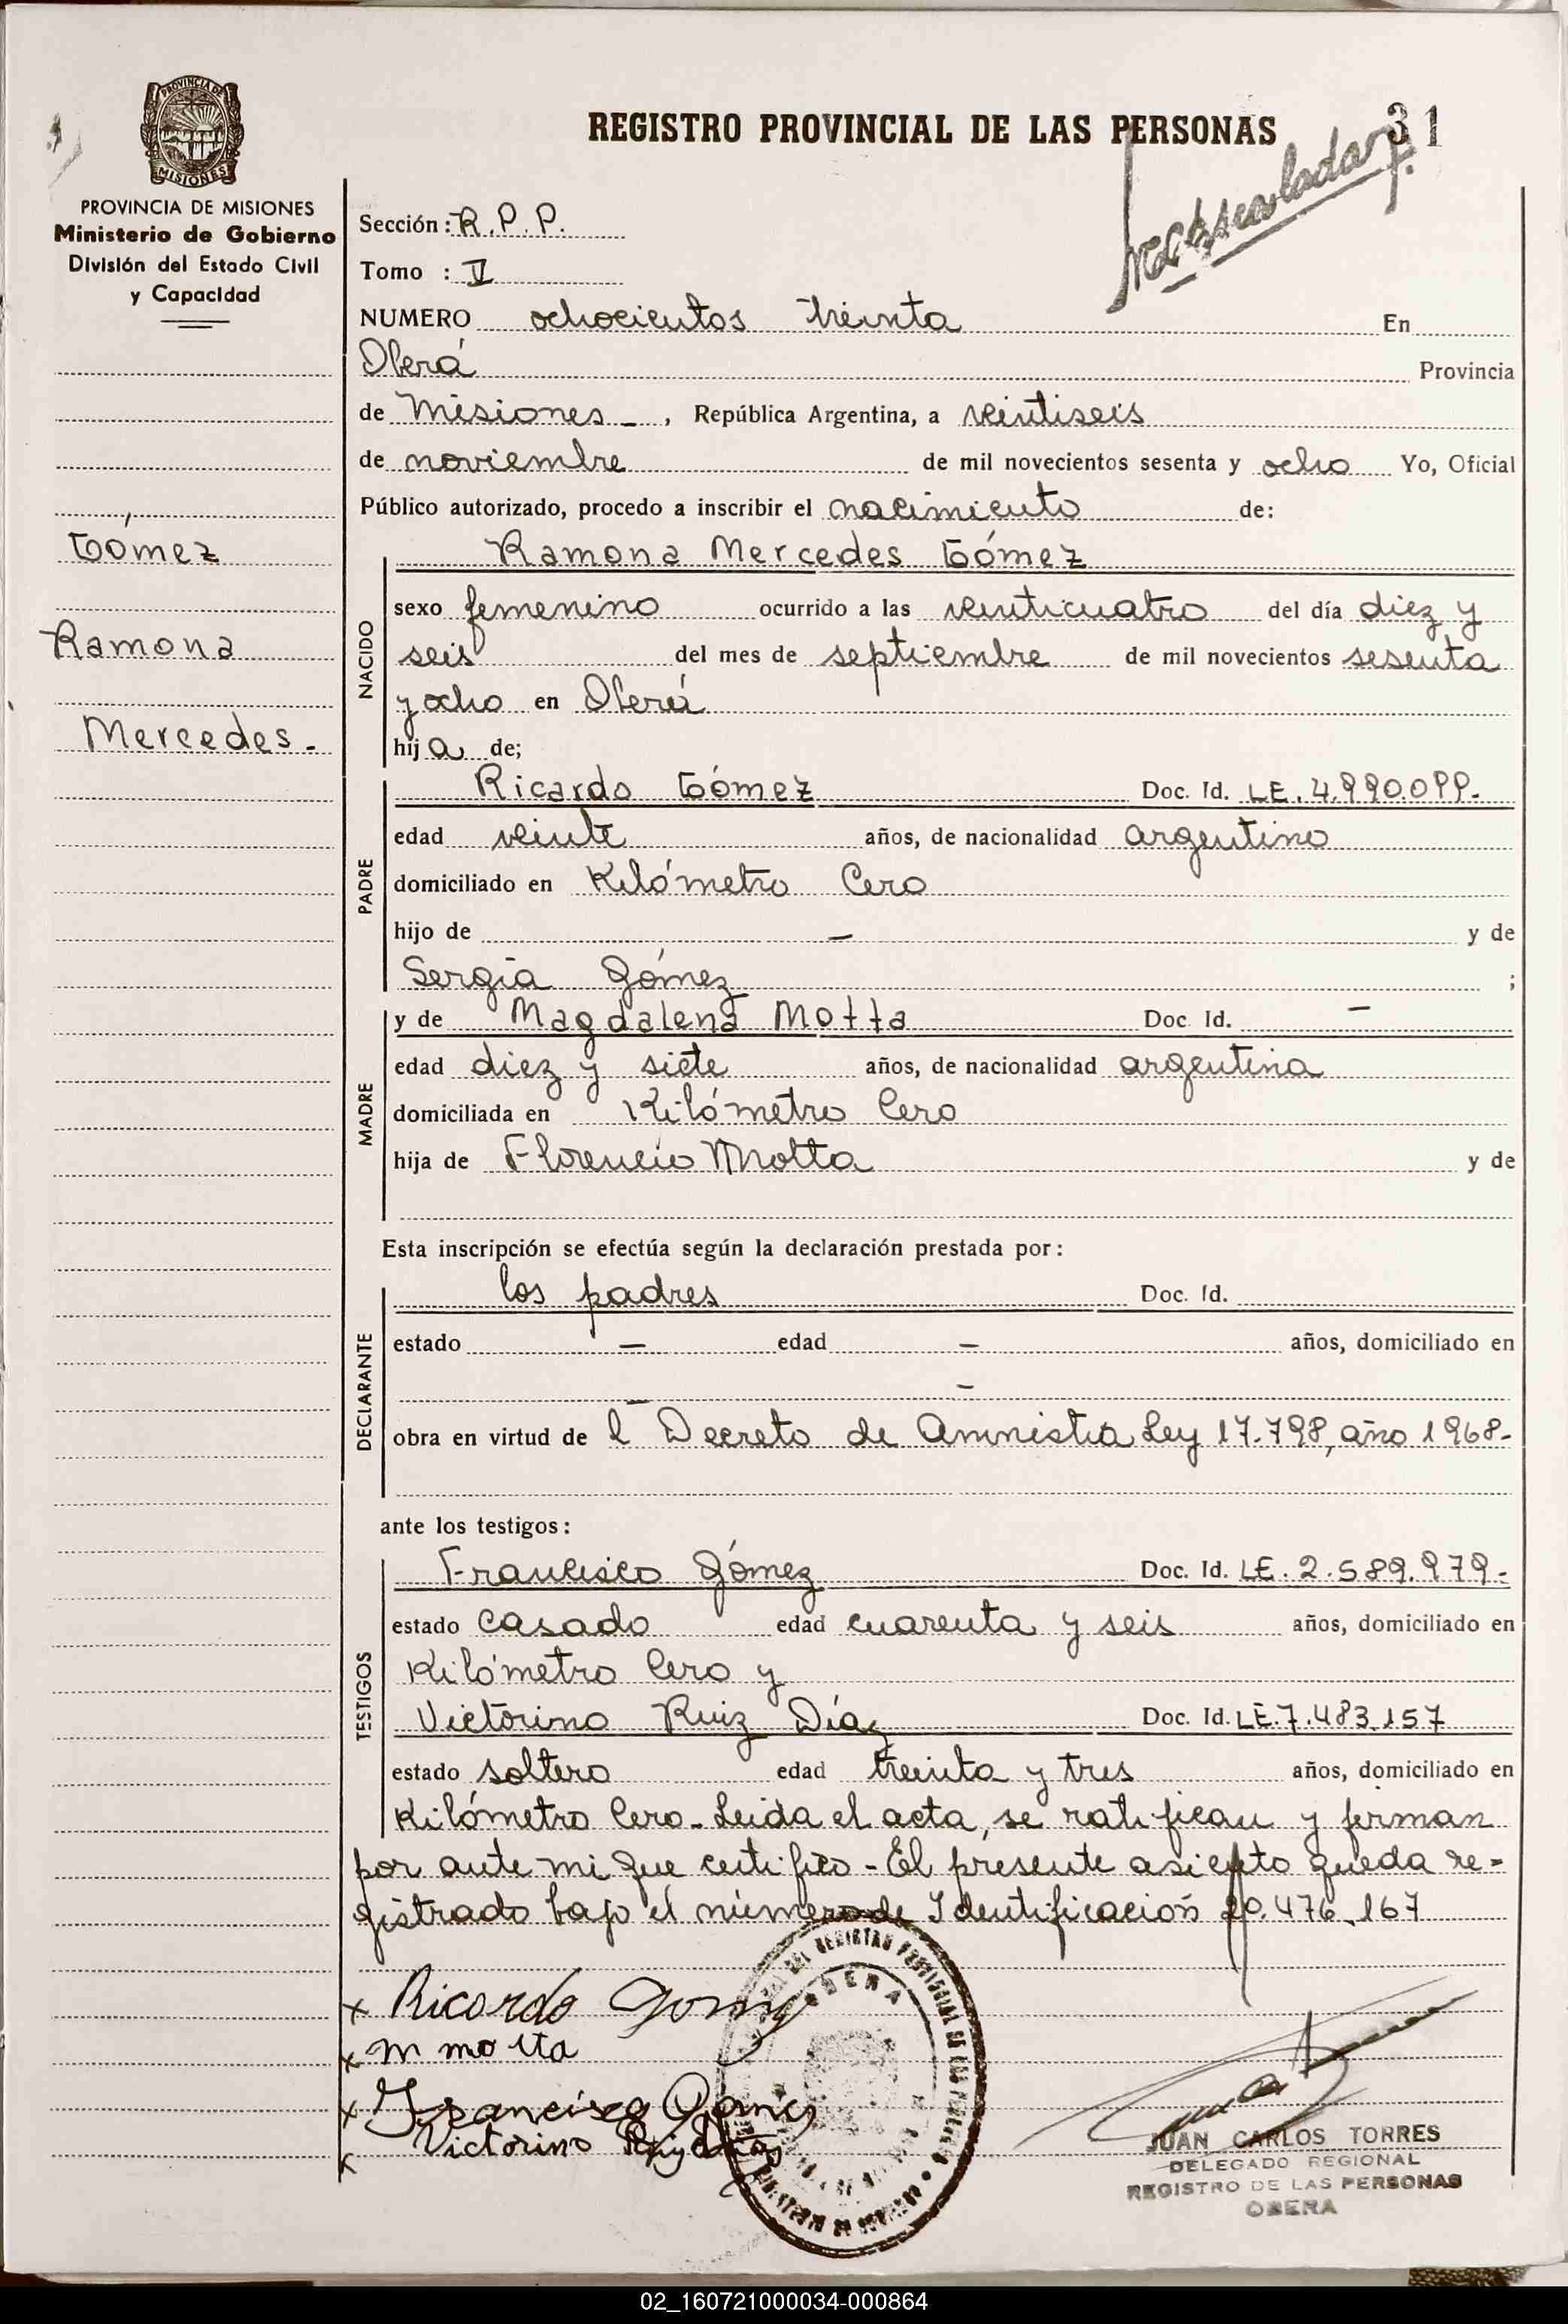 REGISTRO PROVINCIAL DE LAS PERSONAS
31
PROVINCIA DE
MISIONES
PROVINCIA DE MISIONES
Ministerio de Gobierno
División del Estado Civil
y Capacidad
Gómez
Ramona
Mercedes.-
Sección: R.P.P.
Tomo : V
NUMERO ochocientos treinta En
Oberá Provincia
de Misiones -, República Argentina, a veintiseis
de noviembre de mil novecientos sesenta y ocho Yo, Oficial
Público autorizado, procedo a inscribir el nacimiento de:
NACIDO
Ramona Mercedes Gómez
sexo femenino ocurrido a las veinticuatro del día diez y
seis del mes de septiembre de mil novecientos sesenta
y ocho en Oberá
hija de;
PADRE
Ricardo Gómez Doc. Id. LE. 4.990.099.-
edad veinte años, de nacionalidad argentino
domiciliado en Kilómetro Cero
hijo de - y de
Sergia Gómez ;
MADRE
y de Magdalena Motta Doc. Id. -
edad diez y siete años, de nacionalidad argentina
domiciliada en Kilómetro Cero
hija de Florencio Motta y de
Esta inscripción se efectúa según la declaración prestada por:
DECLARANTE
los padres Doc. Id.
estado - edad - años, domiciliado en
-
obra en virtud de l Decreto de Amnistia Ley 17.798, año 1968.-
ante los testigos:
TESTIGOS
Francisco Gómez Doc. Id. LE. 2.589.979.-
estado casado edad cuarenta y seis años, domiciliado en
Kilómetro Cero y
Victorino Ruiz Díaz Doc. Id. LE. 7.483.157
estado soltero edad treinta y tres años, domiciliado en
Kilómetro Cero.- Leida el acta, se ratifican y firman
por ante mi que certifico - El presente asiento queda re-
gistrado bajo el número de Identificación 20.476.167
x Ricardo Gomez
x m motta
x Francisco Gomes
x Victorino Ruiz Diaz
OBERA
JUAN CARLOS TORRES
DELEGADO REGIONAL
REGISTRO DE LAS PERSONAS
OBERA
02_160721000034-000864